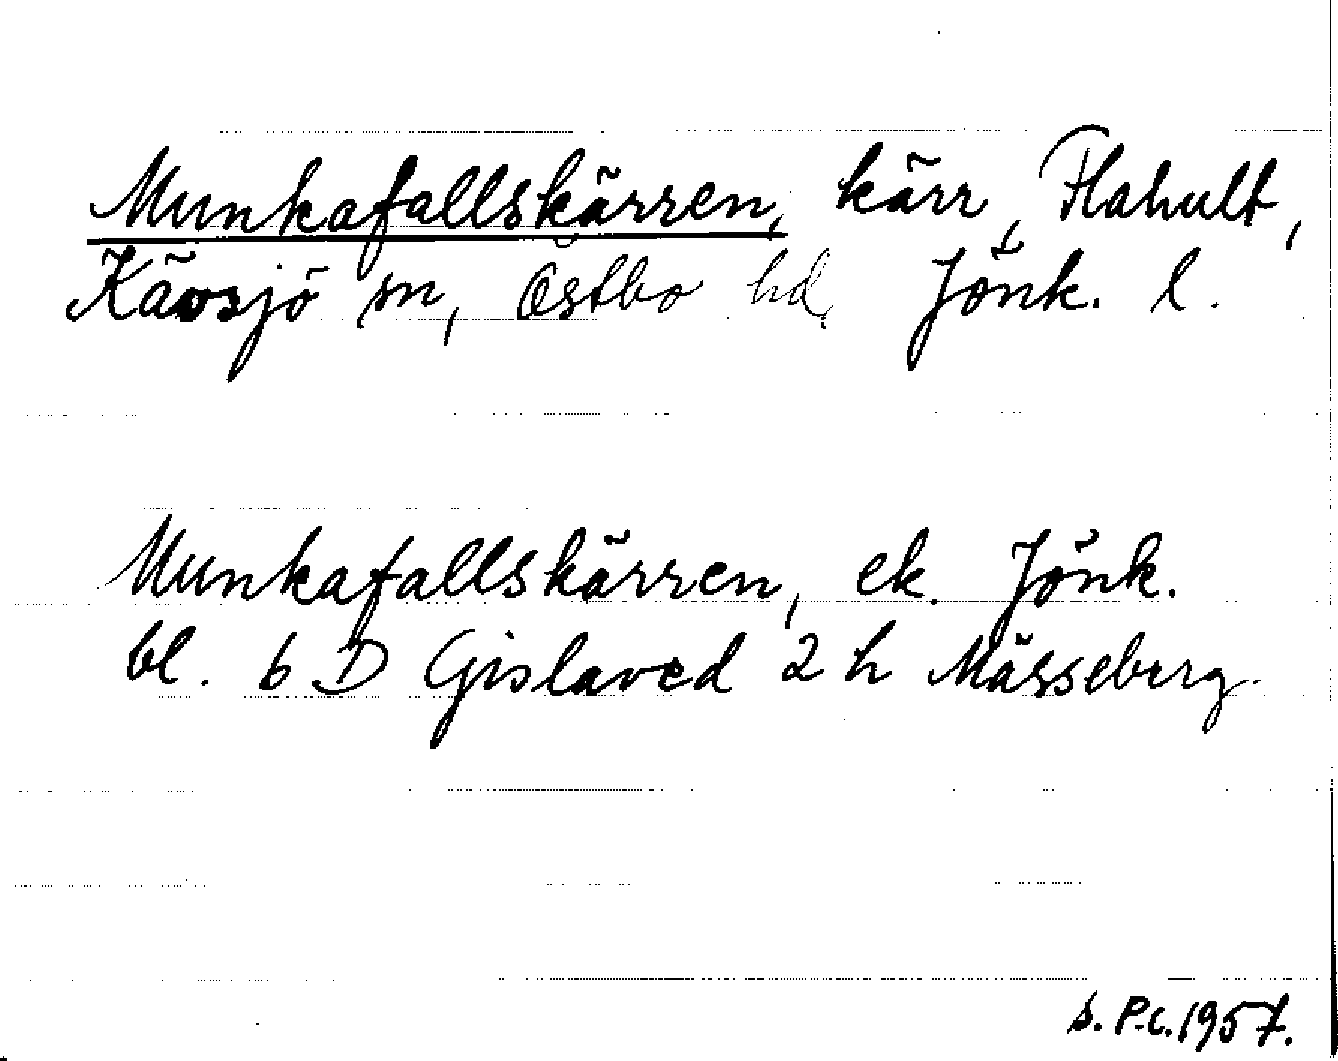 Munkafallskärren, kärr, Flahult,
Kävsjö sn, Östbo hd, Jönk. l.
Munkafallskärren, ek. Jönk.
bl. 6 D Gislaved 2 h Mässeberg.
S. P-c. 1957.